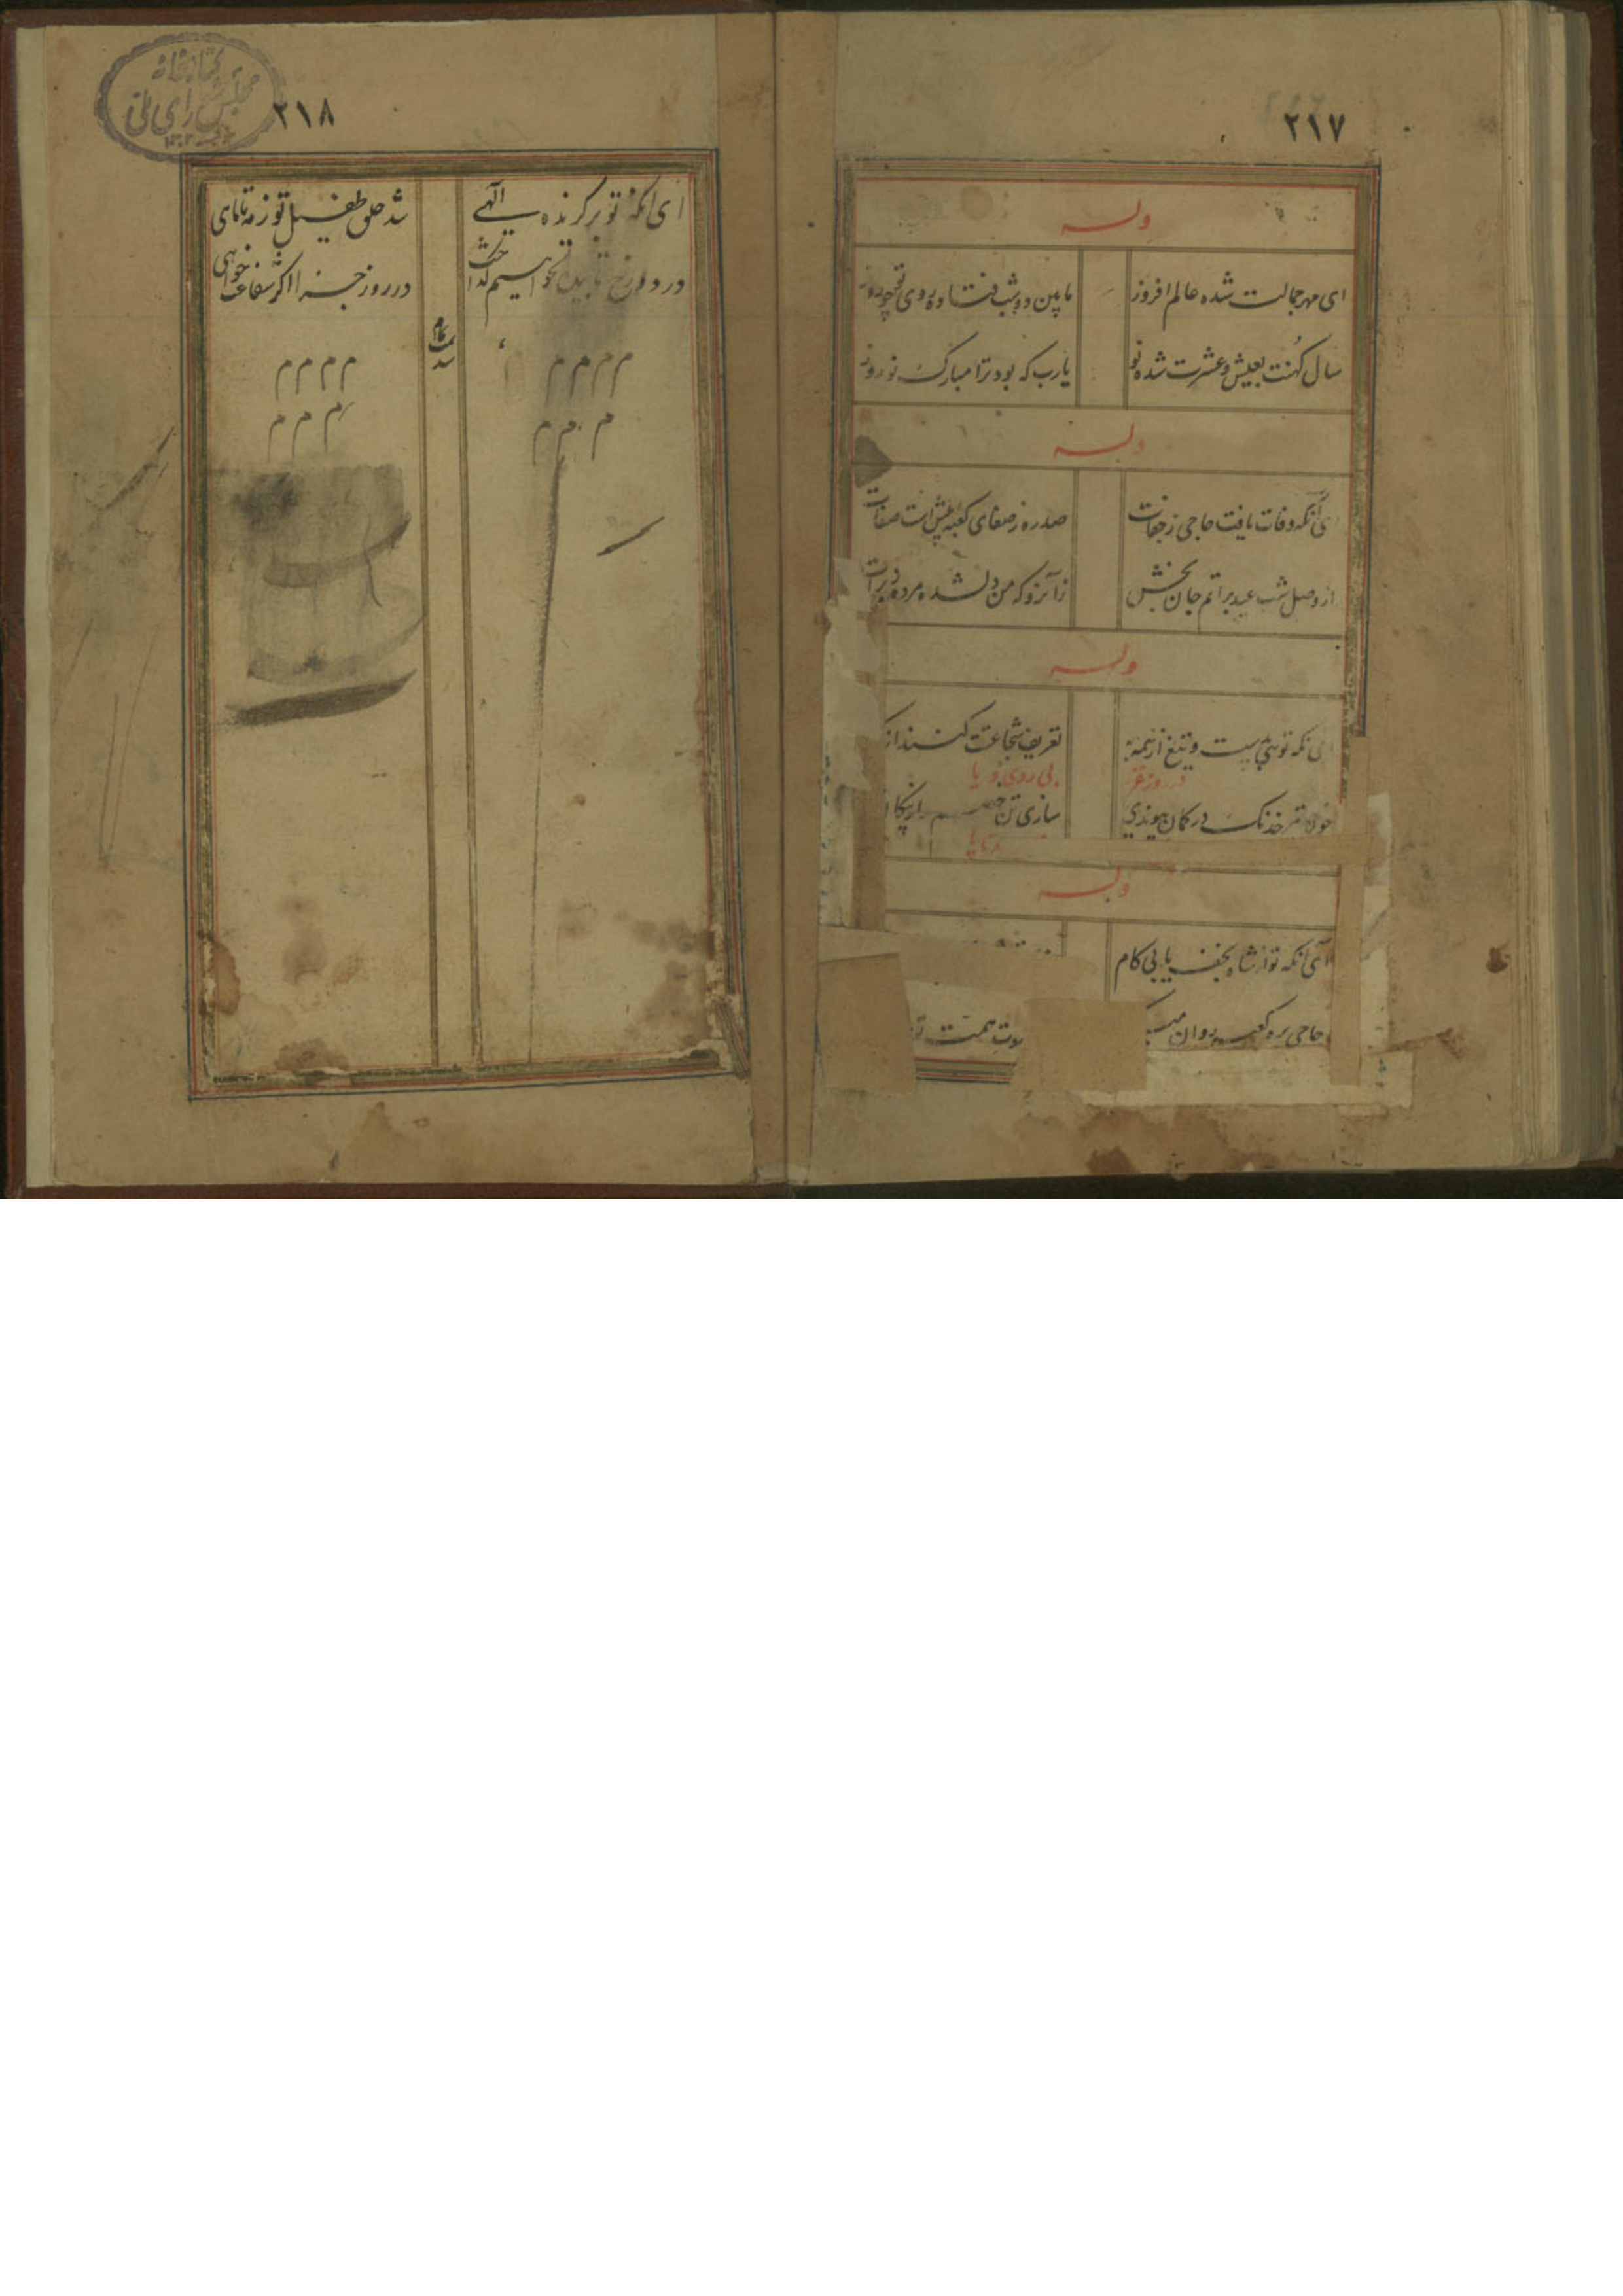 ۲۱۷
وله
ای مهر جمالت شده عالم افروز
مابین دو شب فتاده روی تو چو روز
سال کهنت بعیش و عشرت شده نو
یارب که بود ترا مبارک نوروز
وله
ای آنکه وفات یافت حاجی ز جفات
صدره ز صفای کعبه پیش است صفات
از وصل شب عید براتم جان بخش
زآنرو که من دلشده مرده برات
وله
تعریف شجاعت کنند از
در روز غزا
بی روی و ریا
خدنک در کمان پیوندی
سازی تن خصم را ز پیکان
سرتاپا
وله
آی آنکه تو از شاه نجف یابی کام
حاجی بره کعبه روان
همت
۲۱۸
کتابخانه
مجلس شورای ملی
ای آنکه تو برگزیده الهی
شد خلق طفیل تو ز مه تا ماهی
در دوزخ تابیده نخواهیم گداخت
در روز جزا اگر شفاعت خواهی
تمام شد
م م م م
م م م م
م م م
م م م